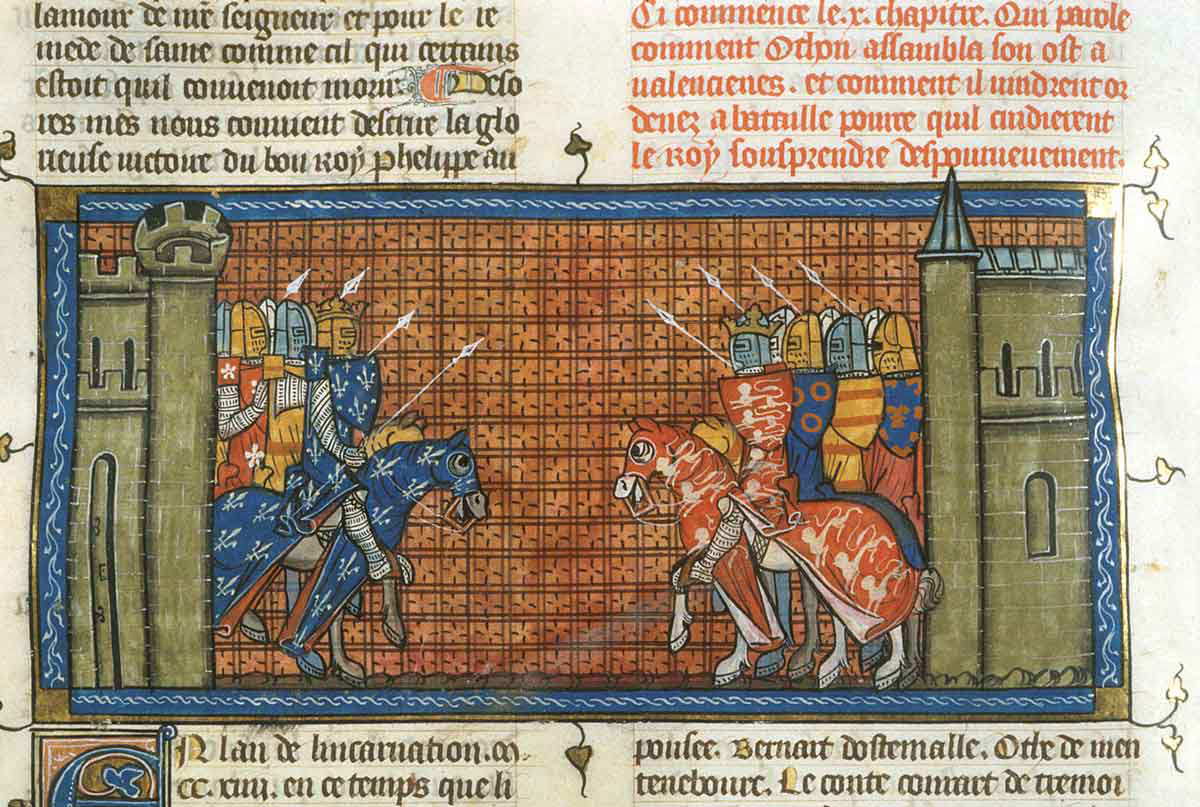 lamour de nre seigneur et pour le re
mede de same comme cil qui certains
estoit quil couuenoit morir. Deso
res mes nous couuient descrire la glo
rieuse uictoire du bon Roy phelippe au
Ci commence le .x. chapitre. Qui parole
comment Othon assambla son ost a
ualencienes. et comment il uindrent or
denez a bataille pource quil cuidierent
le Roy sousprendre despourueuement.
EN lan de lincarnation .m.
cc. xiiii. en ce temps que li
ponsee. Bernart dostemalle. Othe de men
tenebourc. Le conte conrart de tremoi